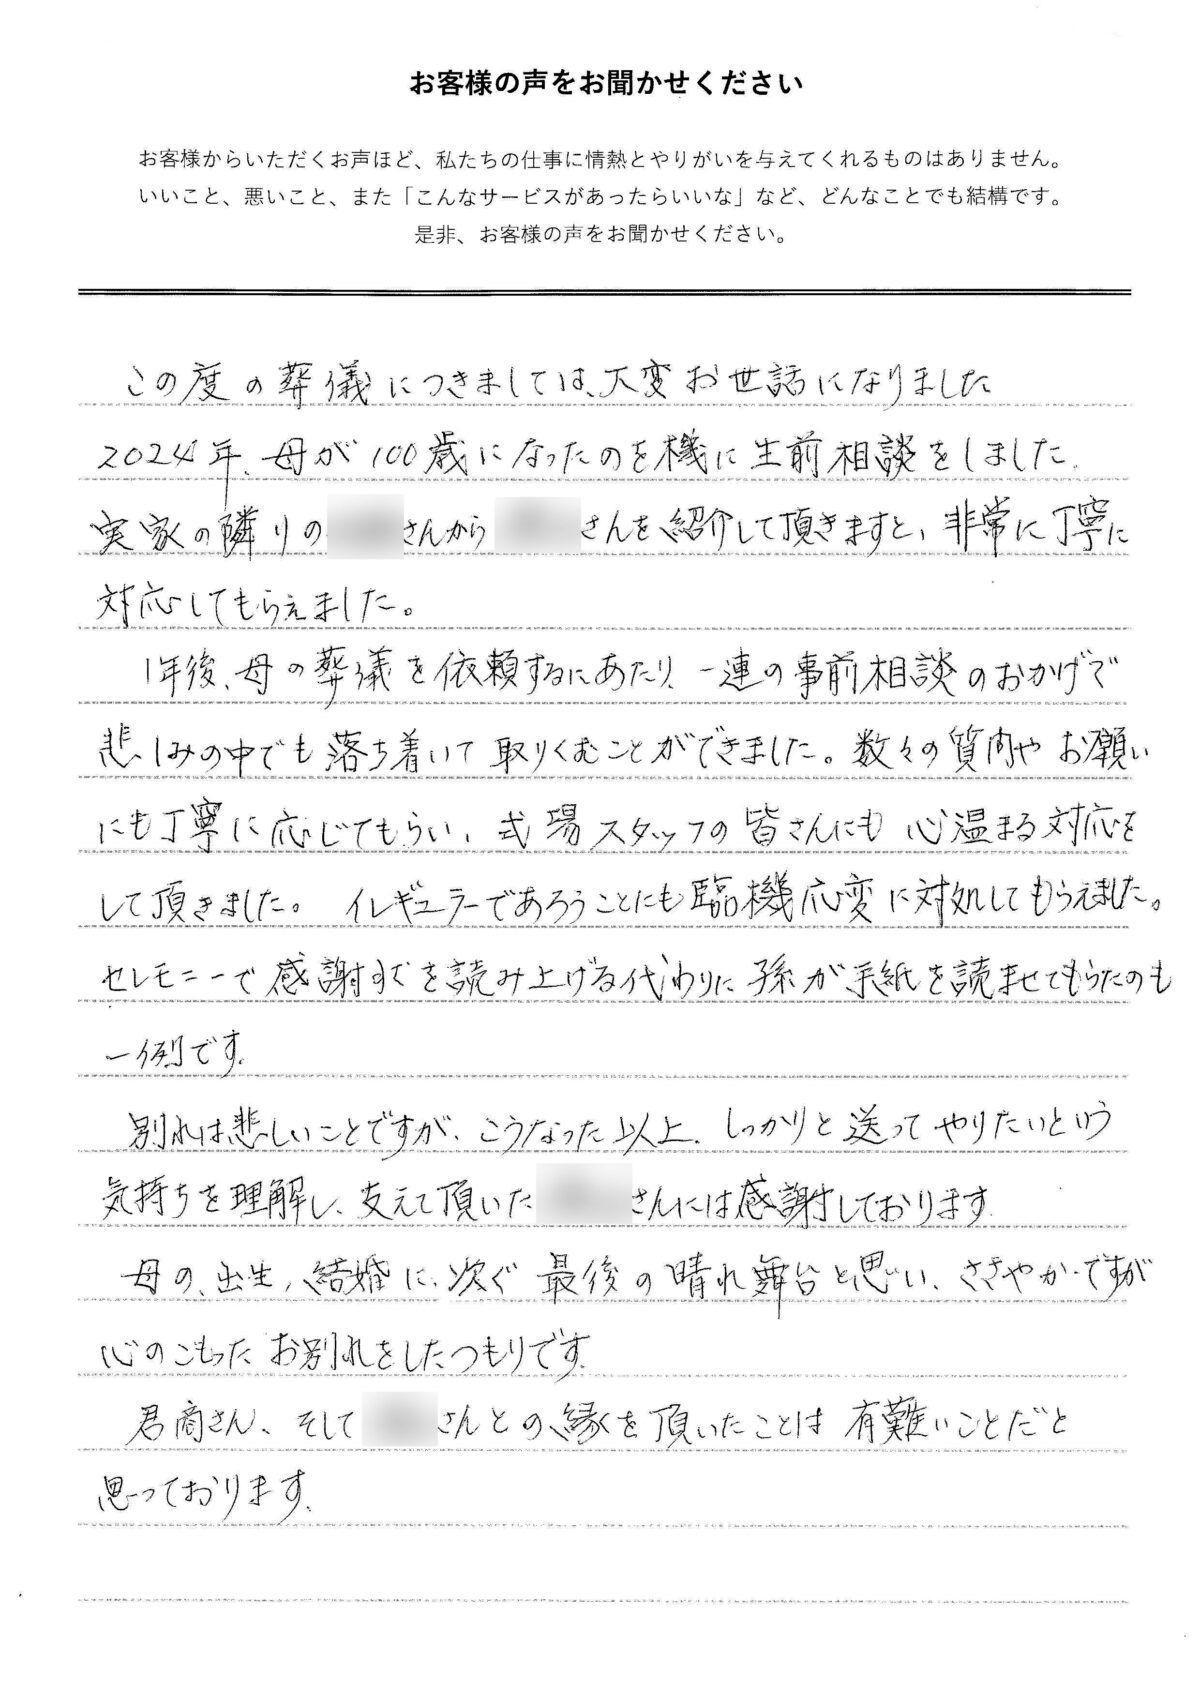 お客様の声をお聞かせください
お客様からいただくお声ほど、私たちの仕事に情熱とやりがいを与えてくれるものはありません。
いいこと、悪いこと、また「こんなサービスがあったらいいな」など、どんなことでも結構です。
是非、お客様の声をお聞かせください。
この度の葬儀につきましては、大変お世話になりました
2024年、母が100歳になったのを機に生前相談をしました.
実家の隣りの さんから さんを紹介して頂きますと、非常に丁寧に
対応してもらえました。
1年後、母の葬儀を依頼するにあたり、一連の事前相談のおかげで
悲しみの中でも落ち着いて取りくむことができました。数々の質問やお願い
にも丁寧に応じてもらい、式場スタッフの皆さんにも心温まる対応を
して頂きました。イレギュラーであろうことにも臨機応変に対処してもらえました。
セレモニーで感謝 を読み上げる代わりに孫が手紙を読ませてもらたのも
一例です.
別れは悲しいことですが、こうなった以上、しっかりと送ってやりたいという
気持ちを理解し、支えて頂いた さんには感謝しております.
母の、出生、結婚に、次ぐ最後の晴れ舞台と思い、ささやかですが
心のこもったお別れをしたつもりです.
君商さん、そして さんとの縁を頂いたことは有難いことだと
思っております.